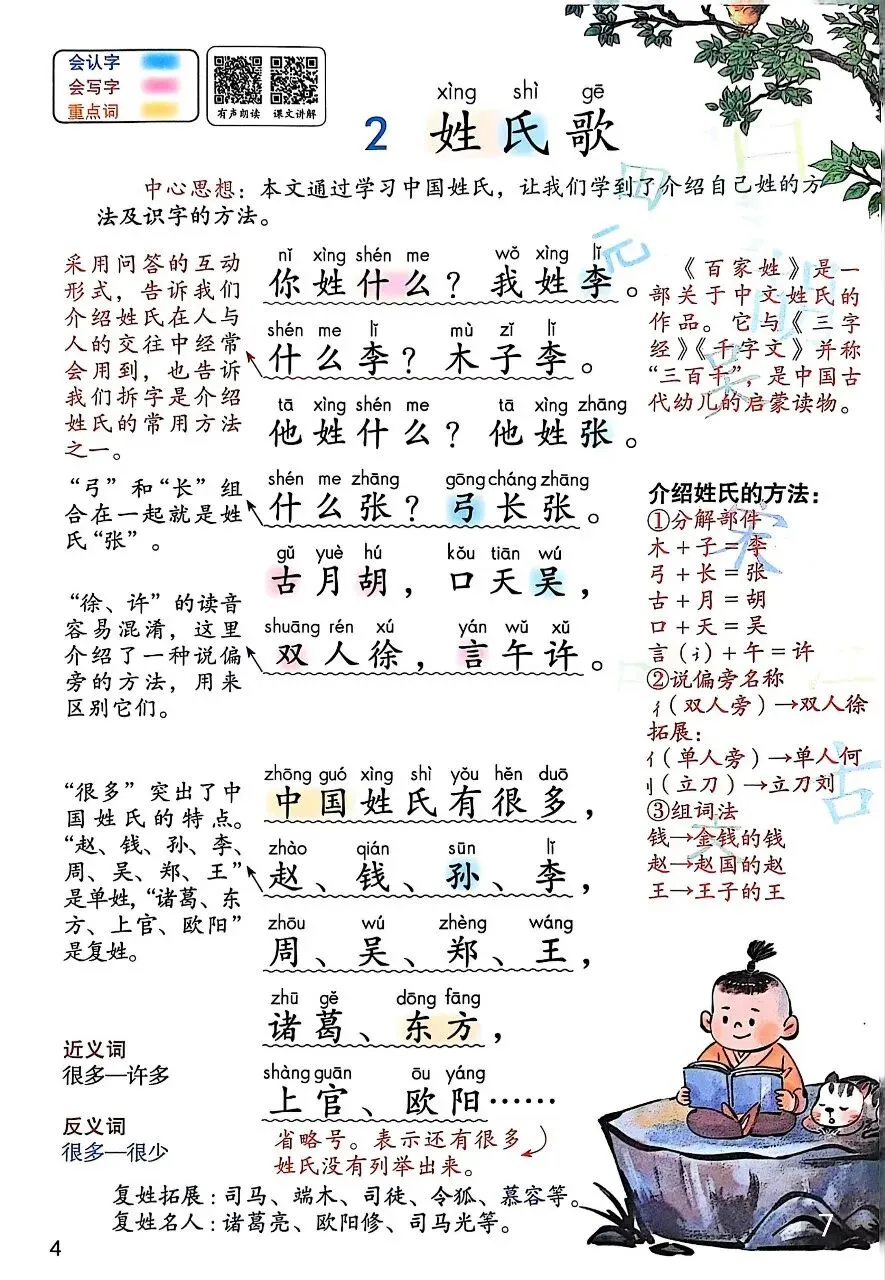 会认字
会写字
重点词
有声朗读 课文讲解
xìng shì gē
2 姓氏歌
中心思想：本文通过学习中国姓氏，让我们学到了介绍自己姓的方
法及识字的方法。
采用问答的互动
形式，告诉我们
介绍姓氏在人与
人的交往中经常
会用到，也告诉
我们拆字是介绍
姓氏的常用方法
之一。
“弓”和“长”组
合在一起就是姓
氏“张”。
“徐、许”的读音
容易混淆，这里
介绍了一种说偏
旁的方法，用来
区别它们。
“很多”突出了中
国姓氏的特点。
“赵、钱、孙、李、
周、吴、郑、王”
是单姓，“诸葛、东
方、上官、欧阳”
是复姓。
近义词
很多—许多
反义词
很多—很少
nǐ xìng shén me wǒ xìng lǐ
你姓什么？我姓李。
shén me lǐ mù zǐ lǐ
什么李？木子李。
tā xìng shén me tā xìng zhāng
他姓什么？他姓张。
shén me zhāng gōng cháng zhāng
什么张？弓长张。
gǔ yuè hú kǒu tiān wú
古月胡，口天吴，
shuāng rén xú yán wǔ xǔ
双人徐，言午许。
zhōng guó xìng shì yǒu hěn duō
中国姓氏有很多，
zhào qián sūn lǐ
赵、钱、孙、李，
zhōu wú zhèng wáng
周、吴、郑、王，
zhū gě dōng fāng
诸葛、东方，
shàng guān ōu yáng
上官、欧阳……
省略号。表示还有很多
姓氏没有列举出来。
《百家姓》是一
部关于中文姓氏的
作品。它与《三字
经》《千字文》并称
“三百千”，是中国古
代幼儿的启蒙读物。
介绍姓氏的方法：
①分解部件
木＋子＝李
弓＋长＝张
古＋月＝胡
口＋天＝吴
言（讠）＋午＝许
②说偏旁名称
彳（双人旁）→双人徐
拓展：
亻（单人旁）→单人何
刂（立刀）→立刀刘
③组词法
钱→金钱的钱
赵→赵国的赵
王→王子的王
复姓拓展：司马、端木、司徒、令狐、慕容等。
复姓名人：诸葛亮、欧阳修、司马光等。
4
7